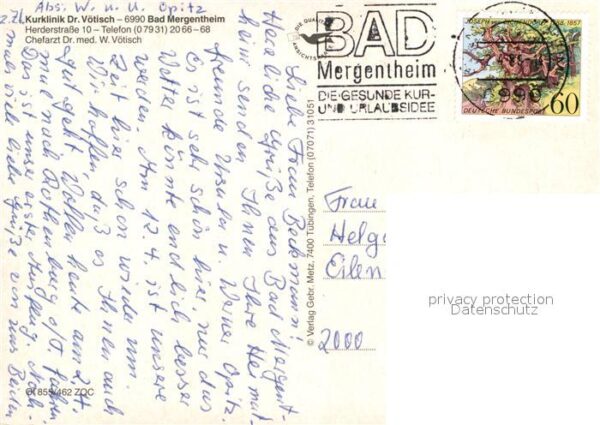 Abs. W. u. U. Opitz
z. Zt. Kurklinik Dr. Vötisch – 6990 Bad Mergentheim
Herderstraße 10 – Telefon (0 79 31) 20 66 – 68
Chefarzt Dr. med. W. Vötisch
Liebe Frau Beckmann!
Herzliche Grüße aus Bad Mergent-
heim senden Ihnen Ihre Heimat-
freunde Ursula u. Werner Opitz.
Es ist sehr schön hier, nur das
Wetter könnte endlich besser
werden. Am 12.4. ist unsere
Zeit hier schon wieder um.
Wir hoffen, daß es Ihnen auch
gut geht. Wollen heute am 2.4.
mal nach Rothenburg o/T. fahren
Das ist unser erster Ausflug. Noch-
mals viele liebe Grüße von uns Beiden
© Verlag Gebr. Metz, 7400 Tübingen, Telefon (07071) 31051
855/462 ZOC
DIE QUALITÄTS
ANSICHTSKARTE
BAD
Mergentheim
DIE GESUNDE KUR-
UND URLAUBSIDEE
6990
1857
DEUTSCHE BUNDESPOST
60
Frau
Helga
Eilen
2000
privacy protection
Datenschutz